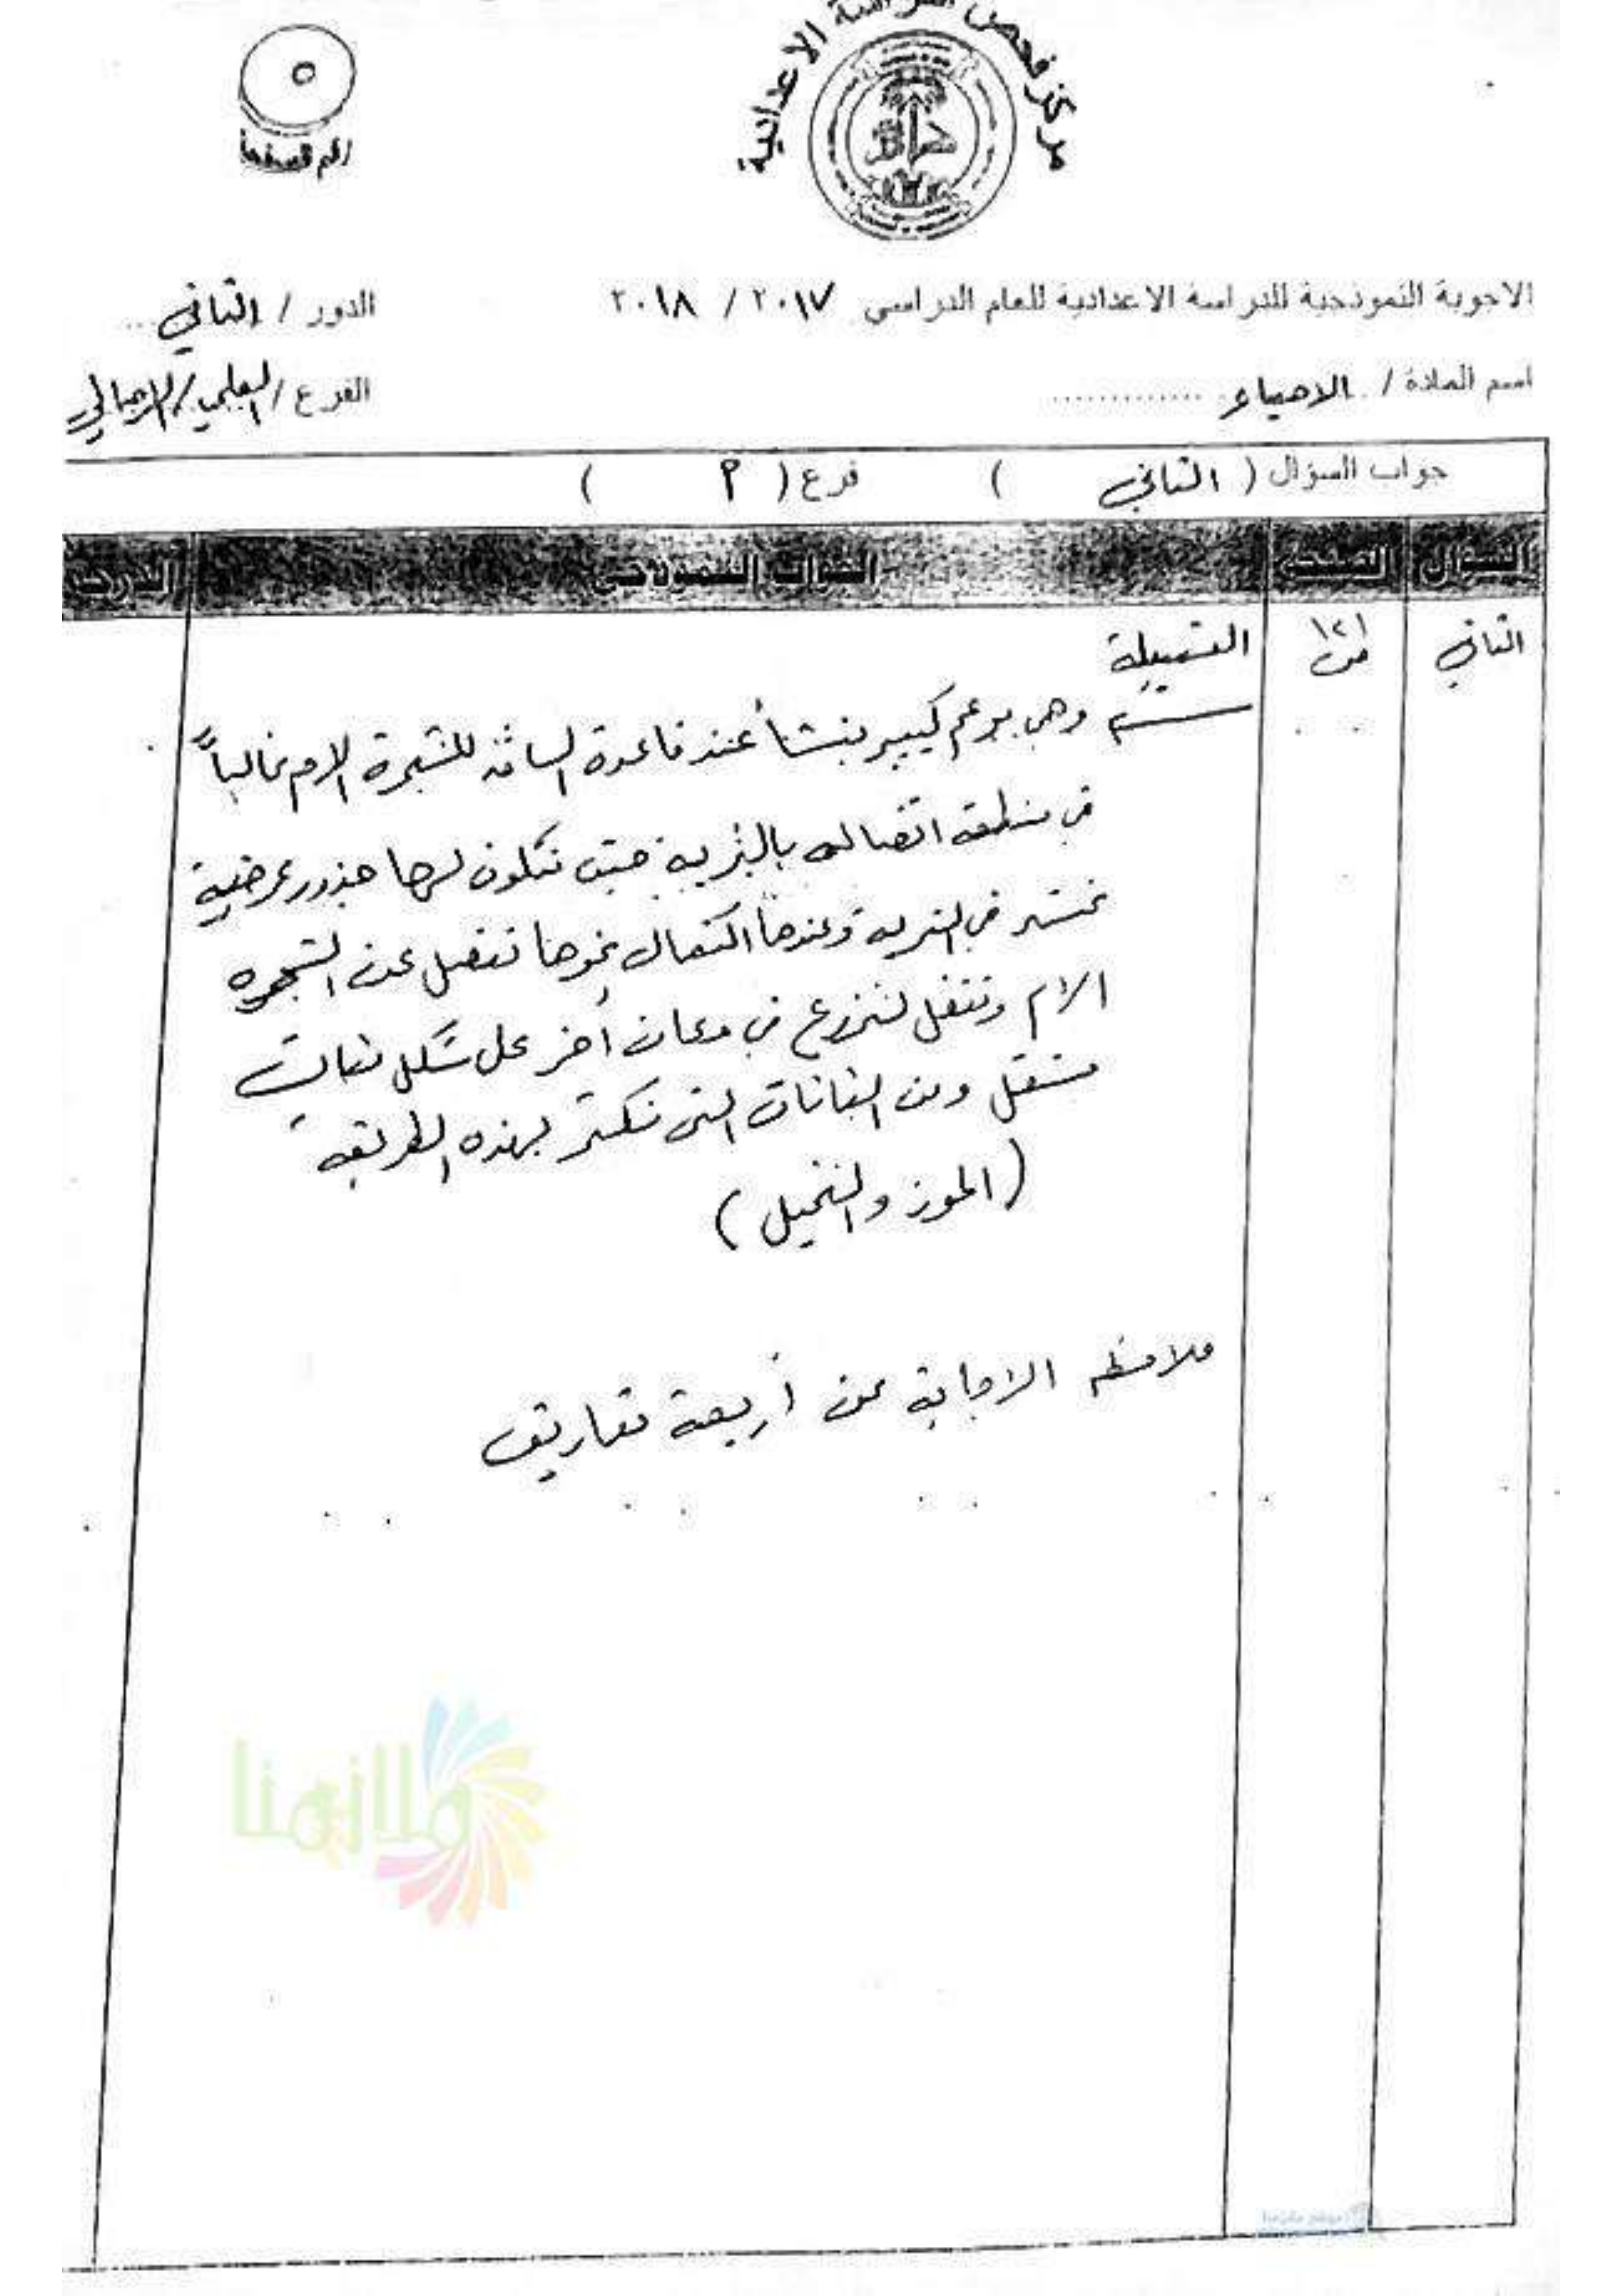 مركز فحص الدراسة الاعدادية
٥
رقم الصفحة
الاجوبة النموذجية للدراسة الاعدادية للعام الدراسي ٢٠١٧ / ٢٠١٨
الدور / الثاني
اسم المادة / الاحياء
الفرع / العلمي /
جواب السؤال ( الثاني ) فرع ( ٩ )
السؤال الصفحة الجواب النموذجي الدرجة
الثاني
ص ١٢١
الفسيلة
وهي برعم كبير ينشأ عند قاعدة الساق للشجرة الام غالباً
في منطقة اتصاله بالتربة حيث تتكون لها جذور عرضية
تنتشر في التربة وعندما اكتمال نموها تفصل عن الشجرة
الام وتنقل لتزرع في مكان أخر على شكل نبات
مستقل ومن النباتات التي تتكثر بهذه الطريقة
(الموز والنخيل)
ملاحظه الاجابة عن أربعة تعاريف
ملازمنا
موقع ملازمنا